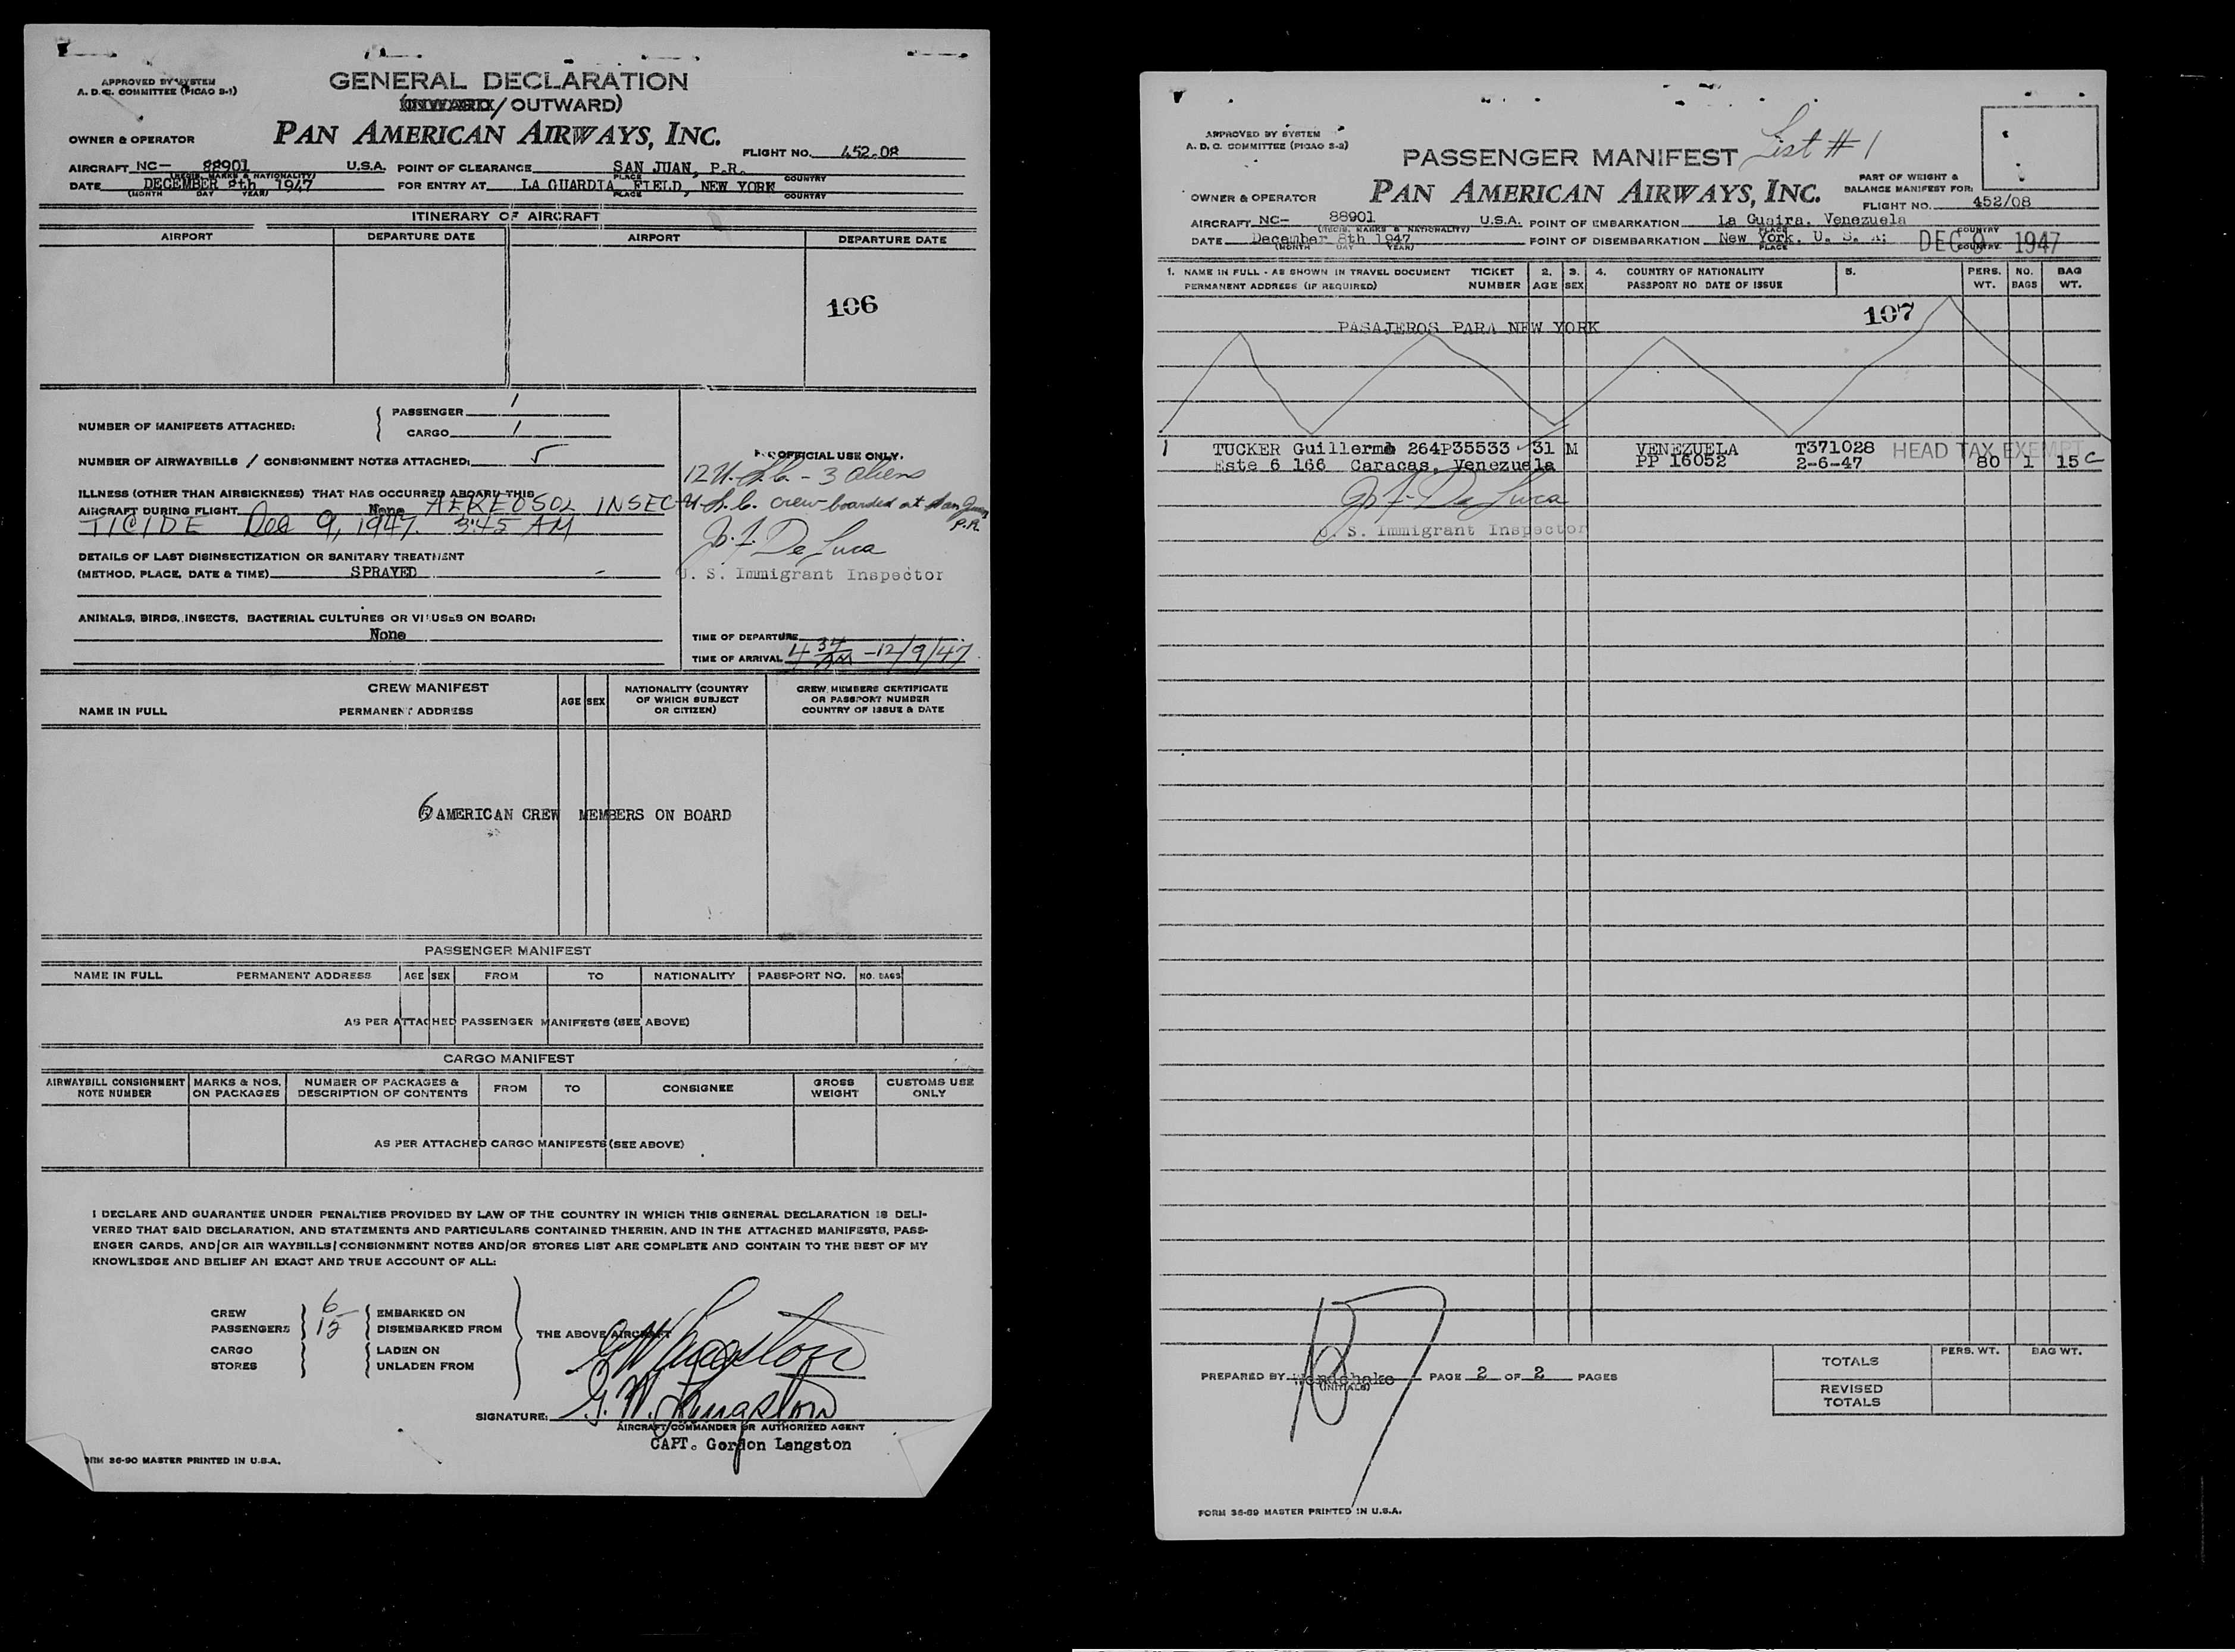 APPROVED BY SYSTEM
A. D. C. COMMITTEE (PICAO S-1)
GENERAL DECLARATION
(INWARD/OUTWARD)
OWNER & OPERATOR
PAN AMERICAN AIRWAYS, INC.
FLIGHT NO. 452.08
AIRCRAFT NC- 88901 U.S.A. POINT OF CLEARANCE SAN JUAN, P.R.
(REGIS. MARKS & NATIONALITY) PLACE COUNTRY
DATE DECEMBER 8th 1947 FOR ENTRY AT LA GUARDIA FIELD, NEW YORK
(MONTH DAY YEAR) PLACE COUNTRY
ITINERARY OF AIRCRAFT
AIRPORT DEPARTURE DATE AIRPORT DEPARTURE DATE
106
NUMBER OF MANIFESTS ATTACHED: PASSENGER 1
CARGO 1
NUMBER OF AIRWAYBILLS / CONSIGNMENT NOTES ATTACHED: 5
ILLNESS (OTHER THAN AIRSICKNESS) THAT HAS OCCURRED ABOARD THIS
AIRCRAFT DURING FLIGHT None AEREOSOL INSEC-
TICIDE Dec 9, 1947. 3:45 AM
DETAILS OF LAST DISINSECTIZATION OR SANITARY TREATMENT
(METHOD, PLACE, DATE & TIME) SPRAYED
ANIMALS, BIRDS, INSECTS, BACTERIAL CULTURES OR VIRUSES ON BOARD:
None
OFFICIAL USE ONLY.
12 U.S.C. - 3 aliens
U.S.C. crew boarded at San Juan
P.R.
Jo. F. De Luca
U. S. Immigrant Inspector
TIME OF DEPARTURE
TIME OF ARRIVAL 4 34 AM - 12/9/47
CREW MANIFEST
NAME IN FULL PERMANENT ADDRESS AGE SEX NATIONALITY (COUNTRY OF WHICH SUBJECT OR CITIZEN) CREW MEMBERS CERTIFICATE OR PASSPORT NUMBER COUNTRY OF ISSUE & DATE
6 AMERICAN CREW MEMBERS ON BOARD
PASSENGER MANIFEST
NAME IN FULL PERMANENT ADDRESS AGE SEX FROM TO NATIONALITY PASSPORT NO. NO. BAGS
AS PER ATTACHED PASSENGER MANIFESTS (SEE ABOVE)
CARGO MANIFEST
AIRWAYBILL CONSIGNMENT NOTE NUMBER MARKS & NOS. ON PACKAGES NUMBER OF PACKAGES & DESCRIPTION OF CONTENTS FROM TO CONSIGNEE GROSS WEIGHT CUSTOMS USE ONLY
AS PER ATTACHED CARGO MANIFESTS (SEE ABOVE)
I DECLARE AND GUARANTEE UNDER PENALTIES PROVIDED BY LAW OF THE COUNTRY IN WHICH THIS GENERAL DECLARATION IS DELI-
VERED THAT SAID DECLARATION, AND STATEMENTS AND PARTICULARS CONTAINED THEREIN, AND IN THE ATTACHED MANIFESTS, PASS-
ENGER CARDS, AND/OR AIR WAYBILLS/CONSIGNMENT NOTES AND/OR STORES LIST ARE COMPLETE AND CONTAIN TO THE BEST OF MY
KNOWLEDGE AND BELIEF AN EXACT AND TRUE ACCOUNT OF ALL:
CREW 6 EMBARKED ON
PASSENGERS 15 DISEMBARKED FROM
THE ABOVE AIRCRAFT
CARGO LADEN ON
STORES UNLADEN FROM
G W Langston
SIGNATURE: G. W. Langston
AIRCRAFT COMMANDER OR AUTHORIZED AGENT
CAPT. Gordon Langston
FORM 36-90 MASTER PRINTED IN U.S.A.
APPROVED BY SYSTEM
A. D. C. COMMITTEE (PICAO S-2)
List # 1
PASSENGER MANIFEST
OWNER & OPERATOR
PAN AMERICAN AIRWAYS, INC.
PART OF WEIGHT &
BALANCE MANIFEST FOR:
FLIGHT NO. 452/08
AIRCRAFT NC- 88901 U.S.A. POINT OF EMBARKATION La Guaira, Venezuela
(REGIS. MARKS & NATIONALITY) PLACE COUNTRY
DATE December 8th 1947 POINT OF DISEMBARKATION New York, U. S. A. DEC 9 1947
(MONTH DAY YEAR) PLACE COUNTRY
1. NAME IN FULL - AS SHOWN IN TRAVEL DOCUMENT TICKET 2. 3. 4. COUNTRY OF NATIONALITY 5. PERS. NO. BAG
PERMANENT ADDRESS (IF REQUIRED) NUMBER AGE SEX PASSPORT NO DATE OF ISSUE WT. BAGS WT.
107
PASAJEROS PARA NEW YORK
1 TUCKER Guillermo 264P35533 31 M VENEZUELA T371028 HEAD TAX EXEMPT
Este 6 166 Caracas, Venezuela PP 16052 2-6-47 80 1 15 C
Jo. F. De Luca
U. S. Immigrant Inspector
PREPARED BY
(INITIALS)
PAGE 2 OF 2 PAGES
PERS. WT. BAG WT.
TOTALS
REVISED TOTALS
FORM 36-89 MASTER PRINTED IN U.S.A.